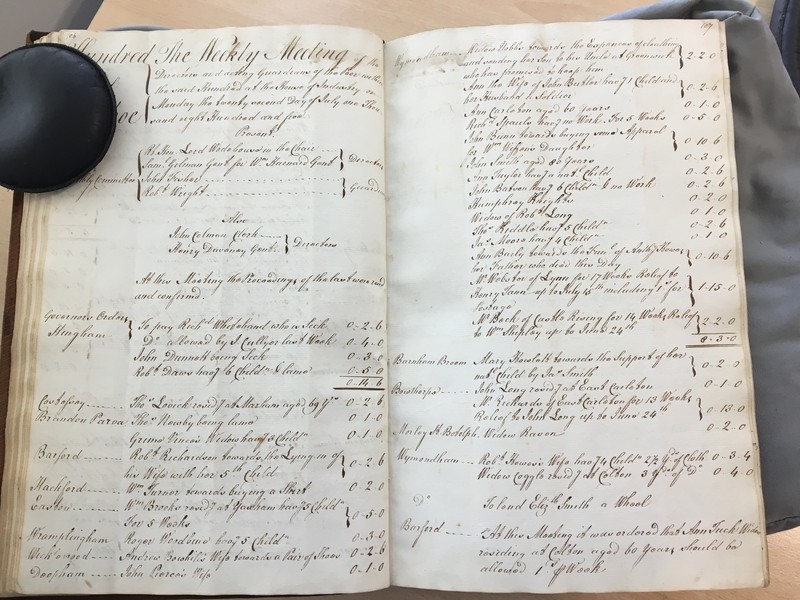 Hundred The Weekly Meeting of the
Directors and acting Guardians of the Poor within
the said Hundred at the House of Industry on
Monday the twenty second Day of July one Thou
sand eight Hundred and five.
Present
Rt. Hon. Lord Wodehouse in the Chair
Directors
Committee
John Fisher
Robt. Wright
Guardians
Also
John Colman Clerk
Henry Gent.
Directors
At this Meeting the Proceedings of the last were read
and confirmed.
Governors Orders
Hingham
To pay Richd. Whitehand who is Sick 0-2-6
Do. allowed by J Cullyer last Week 0-4-0
John Dunnett being Sick 0-3-0
Robt. Daws hag. 6 Childn. & lame 0-5-0
0-14-6
Costessey Thos. Lovick resid. at Marham aged 69 Ys. 0-2-6
Brandon Parva Thos. Newby being lame 0-1-0
Widow hag. 5 Childn. 0-1-0
Barford Robt. Richardson towards the Lying-in of
his Wife with her 5th Child 0-2-6
Hackford Wm. Turner towards buying a Shirt 0-2-0
Easton Wm. Brooks resid. at Yaxham hag. 5 Childn.
For 5 Weeks 0-5-0
Wramplingham Roger hag. 5 Childn. 0-3-0
Wicklewood Andrew Wife towards a Pair of Shoes 0-2-6
Deopham John Pierce's Wife 0-1-0
Wymondham Widow towards the Expences of cloathing
and sending her Son to his Uncle at Greenwich
who has promised to keep him 2-2-0
Ann the Wife of John Butler hag. 1 Child and
her Husband a Soldier 0-2-6
Ann Carleton aged 60 Years 0-1-0
Richd. hag. no Work For 5 Weeks 0-5-0
John Bunn towards buying some Apparel
for Wm. Daughter 0-10-6
John Smith aged 86 Years 0-3-0
Ann Taylor hag. a natl. Child 0-2-6
John Batson hag. 6 Childn. & no Work 0-2-6
Humphrey Knights 0-2-0
Widow of Robt. Long 0-1-0
Thos. hag. 5 Childn. 0-2-6
Jas. Moore hag. 4 Childn. 0-1-0
Ann Baily towards the Funl. of Anthy. Howes
her Father who died this Day 0-10-6
Mr. Webster of Lynn for 17 Weeks Relief to
Henry Tann up to July 15th including 1s. for
Postage 1-15-0
Mr. Back of Castle Rising for 14 Weeks Relief
to Wm. up to June 24th 2-2-0
8-3-0
Barnham Broom Mary towards the Support of her
natl. Child by Jno. Smith 0-2-0
Bowthorpe John Long resid. at East Carleton 0-1-0
Mr. Rickwards of East Carleton for 13 Weeks
Relief to John Long up to June 24th 0-13-0
Morley St. Botolph Widow Raven 0-2-0
Wymondham Robt. Howes's Wife hag. 4 Childn. 2½ Yds. of Cloth 0-3-4
Widow resid. at Colton 3 Yds. of Do. 0-4-0
Do. To lend Elizth. Smith a Wheel
Barford At this Meeting it was ordered that Ann Tuck Widow
residing at Colton aged 60 Years should be
allowed 1s. ℔ Week